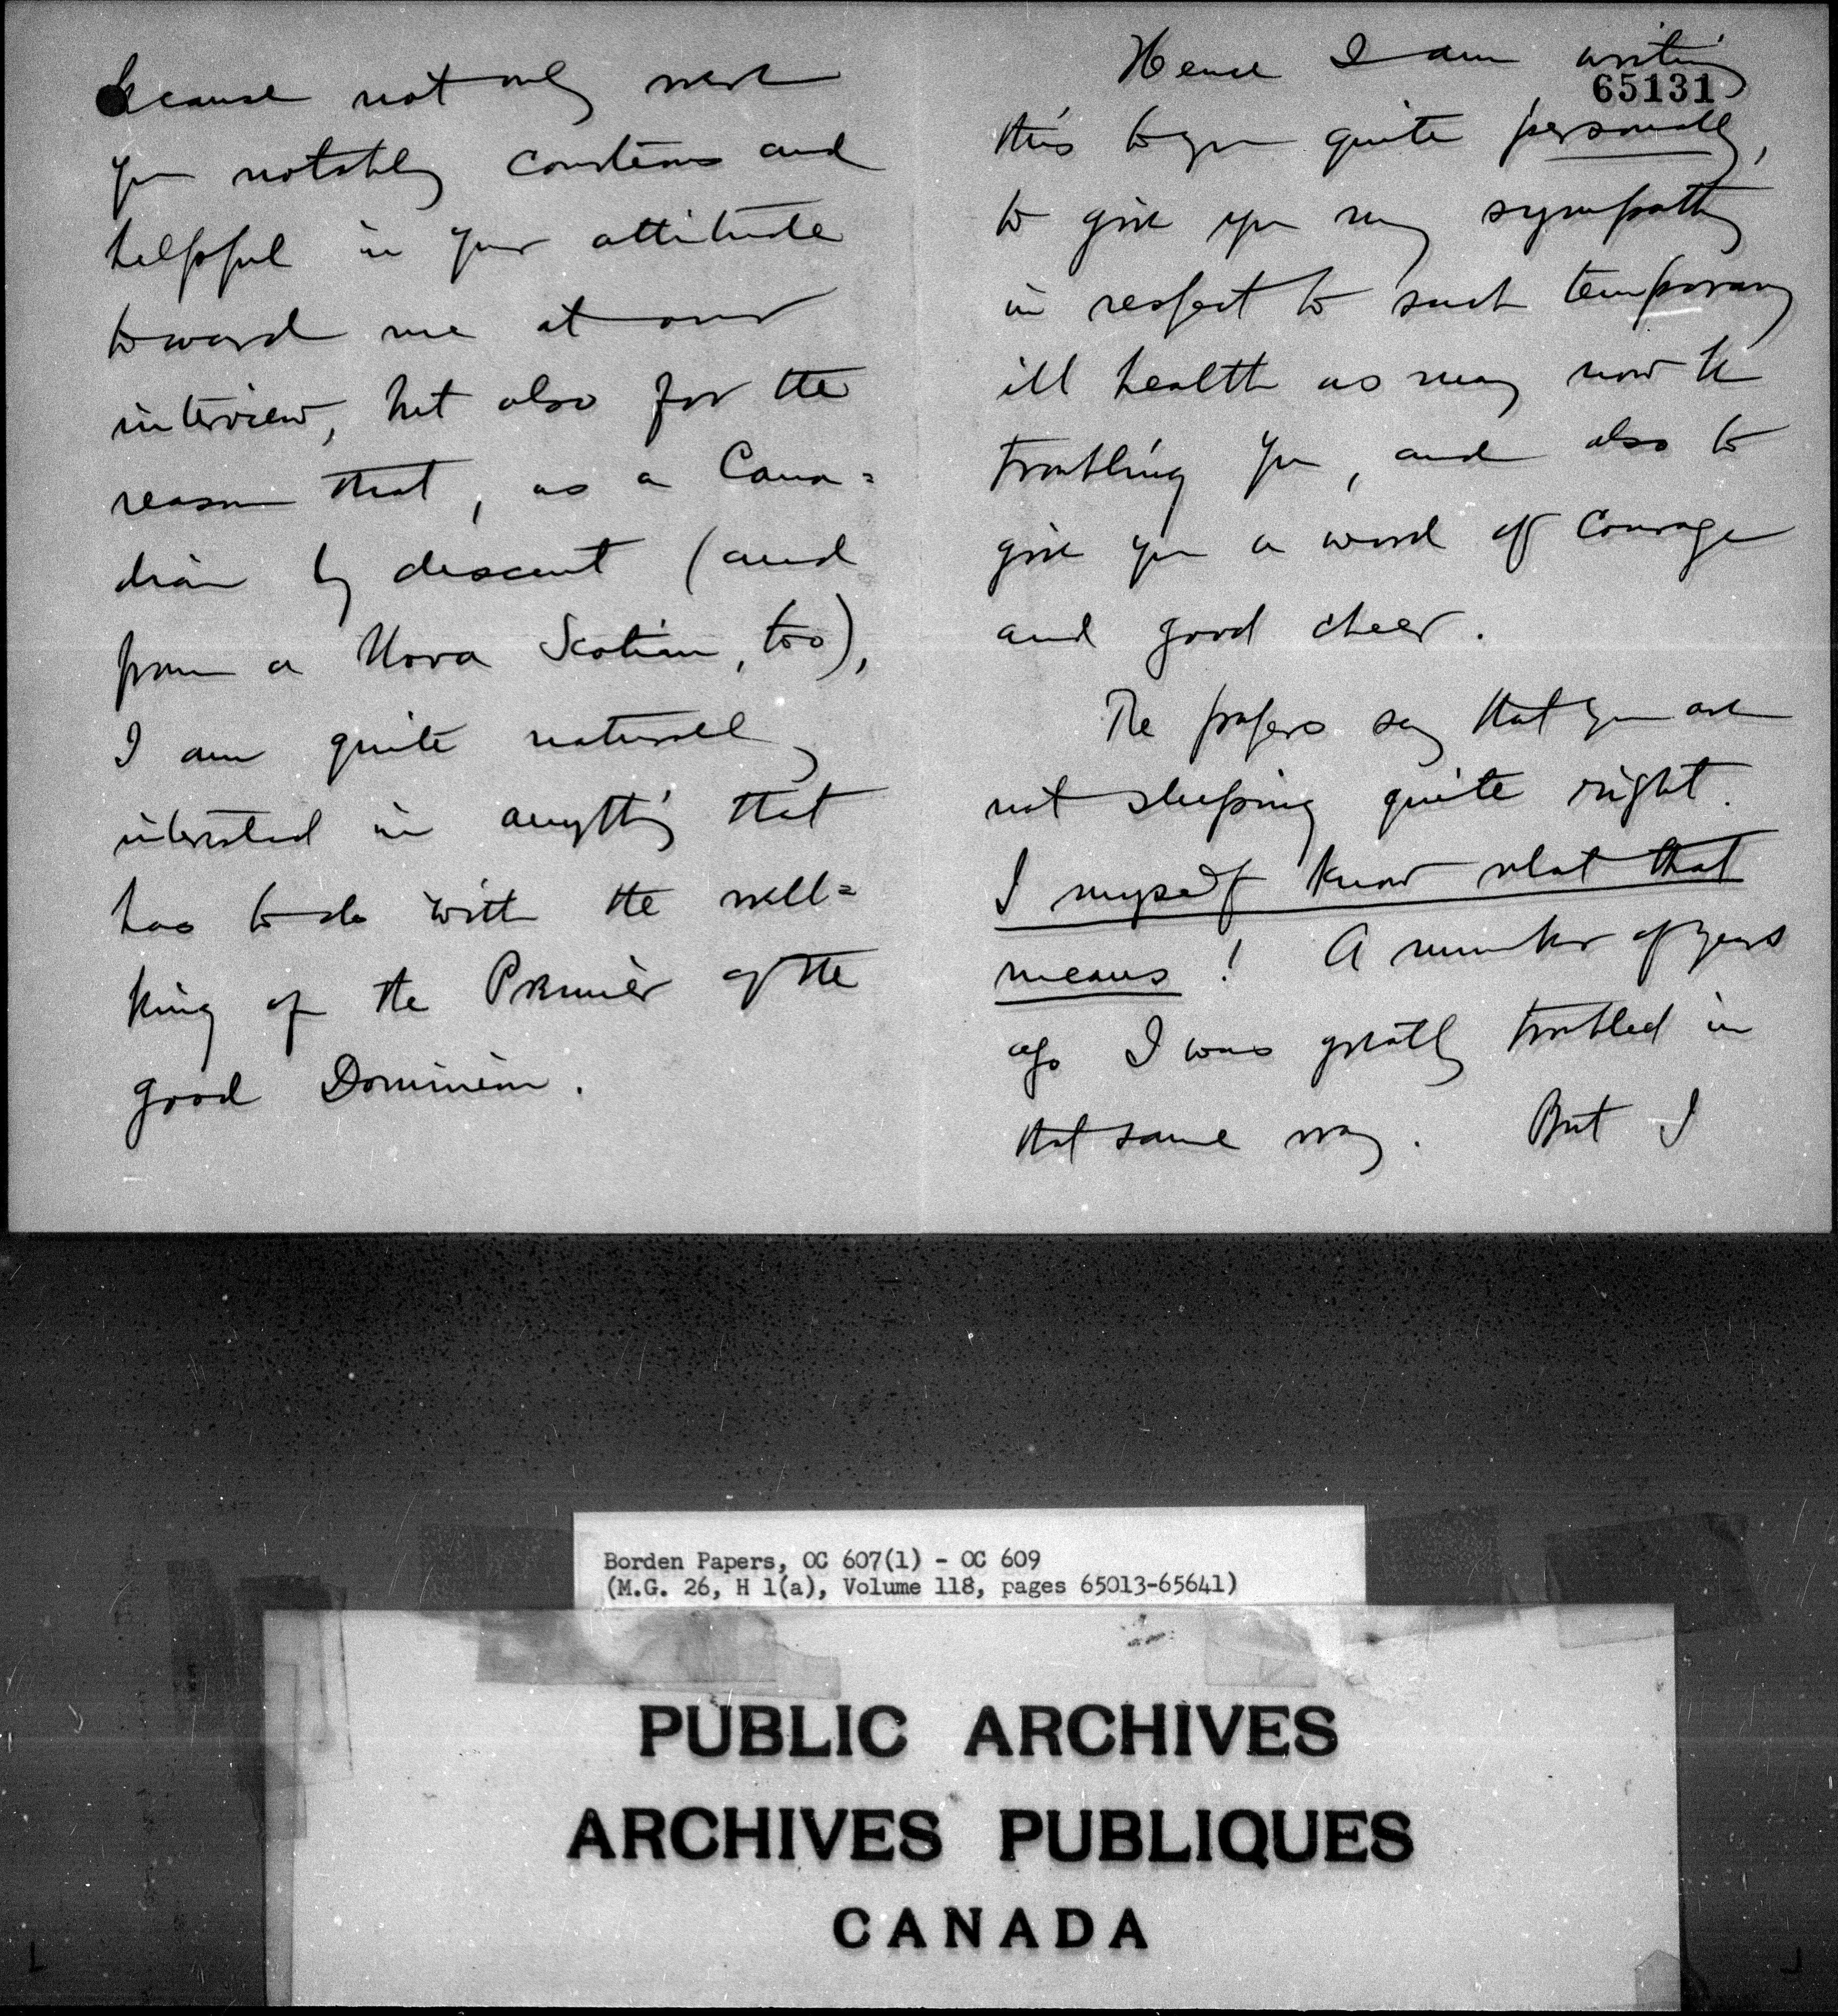 because not only were
you notably courteous and
helpful in your attitude
toward me at our
interview, but also for the
reason that, as a Cana=
dian by descent (and
from a Nova Scotian, too),
I am quite naturally
interested in anything that
has to do with the well=
being of the Premier of the
good Dominion.
Hence I am writing
65131
this to you quite personally,
to give you my sympathy
in respect to such temporary
ill health as may now be
troubling you, and also to
give you a word of courage
and good cheer.
The papers say that you are
not sleeping quite right.
I myself know what that
means! A number of years
ago I was greatly troubled in
that same way. But I
Borden Papers, OC 607(1) - OC 609
(M.G. 26, H 1(a), Volume 118, pages 65013-65641)
PUBLIC ARCHIVES
ARCHIVES PUBLIQUES
CANADA